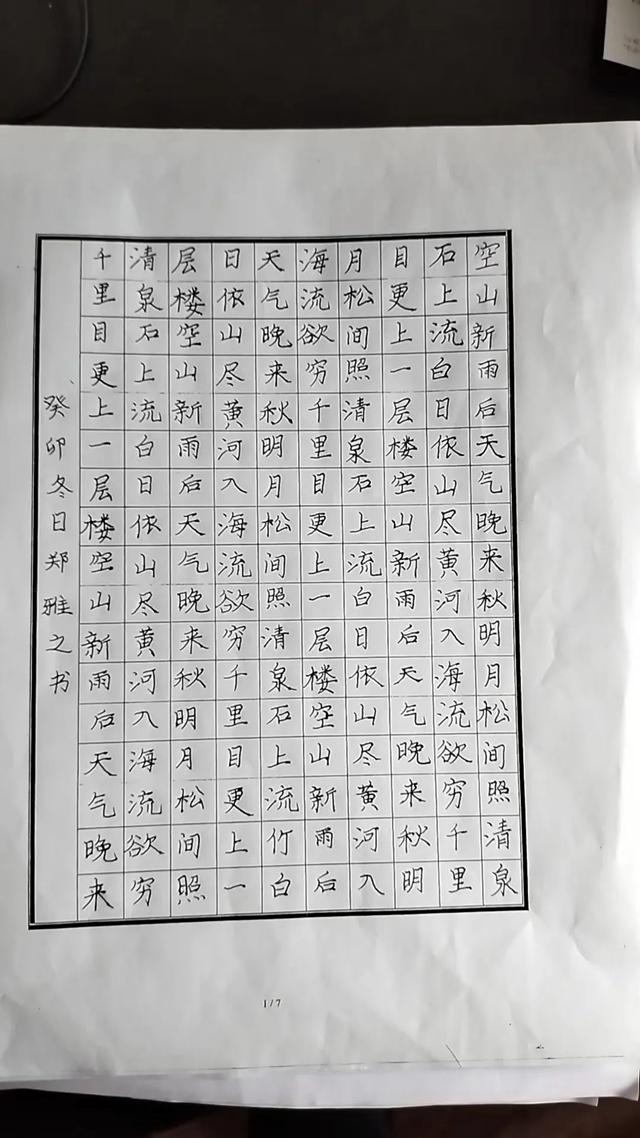 空山新雨后天气晚来秋明月松间照清泉
石上流白日依山尽黄河入海流欲穷千里
目更上一层楼空山新雨后天气晚来秋明
月松间照清泉石上流白日依山尽黄河入
海流欲穷千里目更上一层楼空山新雨后
天气晚来秋明月松间照清泉石上流竹白
日依山尽黄河入海流欲穷千里目更上一
层楼空山新雨后天气晚来秋明月松间照
清泉石上流白日依山尽黄河入海流欲穷
千里目更上一层楼空山新雨后天气晚来
癸卯冬日郑雅之书
1/7